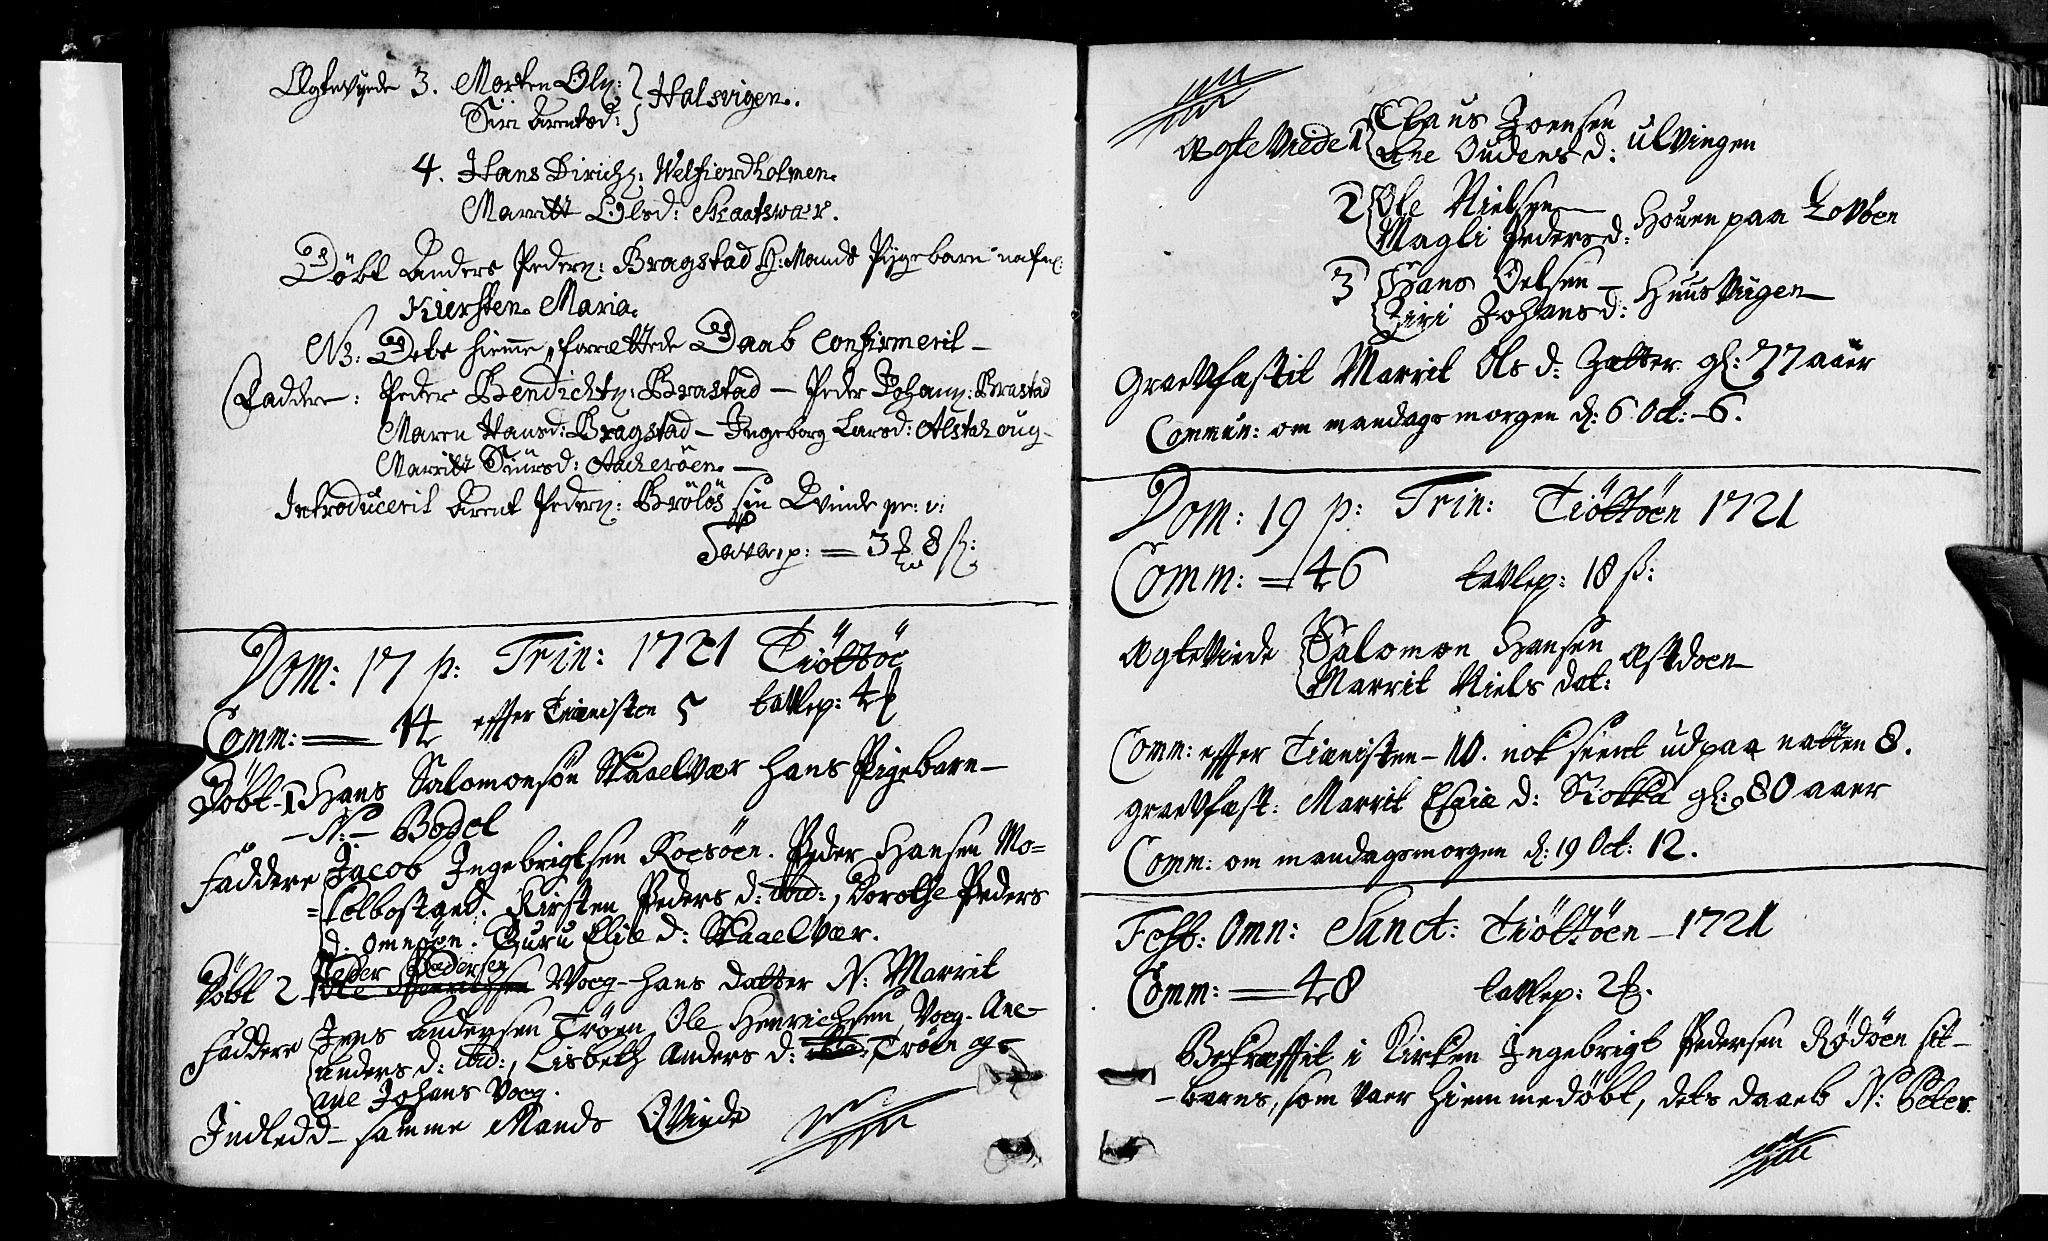 Ægteviede 3. Morten Ols: } Halsvigen.
Siri Arentsd: }
4. Hans Dirichs: Welfiordholmen.
Marritt Olsd: Skaalswær.
Døbt Anders Peders: Bragstad H: Mands Pigebarn nafnl:
Kiersten Maria.
NB: Dets hiemme forrettede Daab Confirmerit –
Faddere: Peder Bendichts: Brastad – Peder Johans: Brastad
Maren Hansd: Bragstad – Ingeborg Larsd: Alstahoug –
Marritt Siursd: Aacherøen. –
Introducerit Arent Peders: Brøløs sin Qvinde
Tavlep: = 3 8 s:
Dom: 17 p: Trin: 1721 Tiøttøe
Comm: — 14 effter Tienisten 5 tavlep: 4
Døbt 1 Hans Salomonsøn Skaaelvær hans Pigebarn –
– N: – Bodel
Faddere Jacob Ingebrigtsen Roesøen. Peder Hansen Mo=
=selbostad. Kirsten Peders d: ibid:, Dorothe Peders
d. Omnøen. Guru Eliæ d: Skaaelvær.
Døbt 2 Peder Pedersen
Ole Henrichsen Voeg – hans datter N: Marrit
Faddere Jens Andersen Trøen, Ole Henrichsen Voeg. Ane –
Anders d: ibid:, Lisbeth Anders d: ibid: Trøen og
Ane Johans Voeg.
Indledd – samme Mands Qvinde
Ægteviede 1 { Claus Joensen
Ane Oudens d: Ulvingen
2 { Ole Nielsen –
Magli Peders d: Houen paa Lovøen
3 { Hans Oelsen –
Ziri Johans d: Huusviigen –
Graevfæstit Marrit Ols d: Zætter gl: 77 aaer
Commun: om mandags morgen d: 6 Oct: – 6.
Dom: 19 p: Trin: Tiøttøen 1721
Comm: = 46 tavlep: 18 s:
Ægteviede { Salomon Hansen
Marrit Niels dat: Astdoen –
Comm: effter Tienisten – 10. nok sient ud paa natten 8.
Graevfæst: Marrit Esaiæ d: Stokka gl: 80 aaer
Comm: om mandagsmorgen d: 19 Oct: 12.
Festo: Omn: Sanct: Tiøttøen – 1721
Comm: = 48 tavlep: 2
Bekræfftit i Kirken Ingebrigt Pedersen Rødøen sit –
– barns, som vaer hiemmedøbt, dets daaeb N: Peter